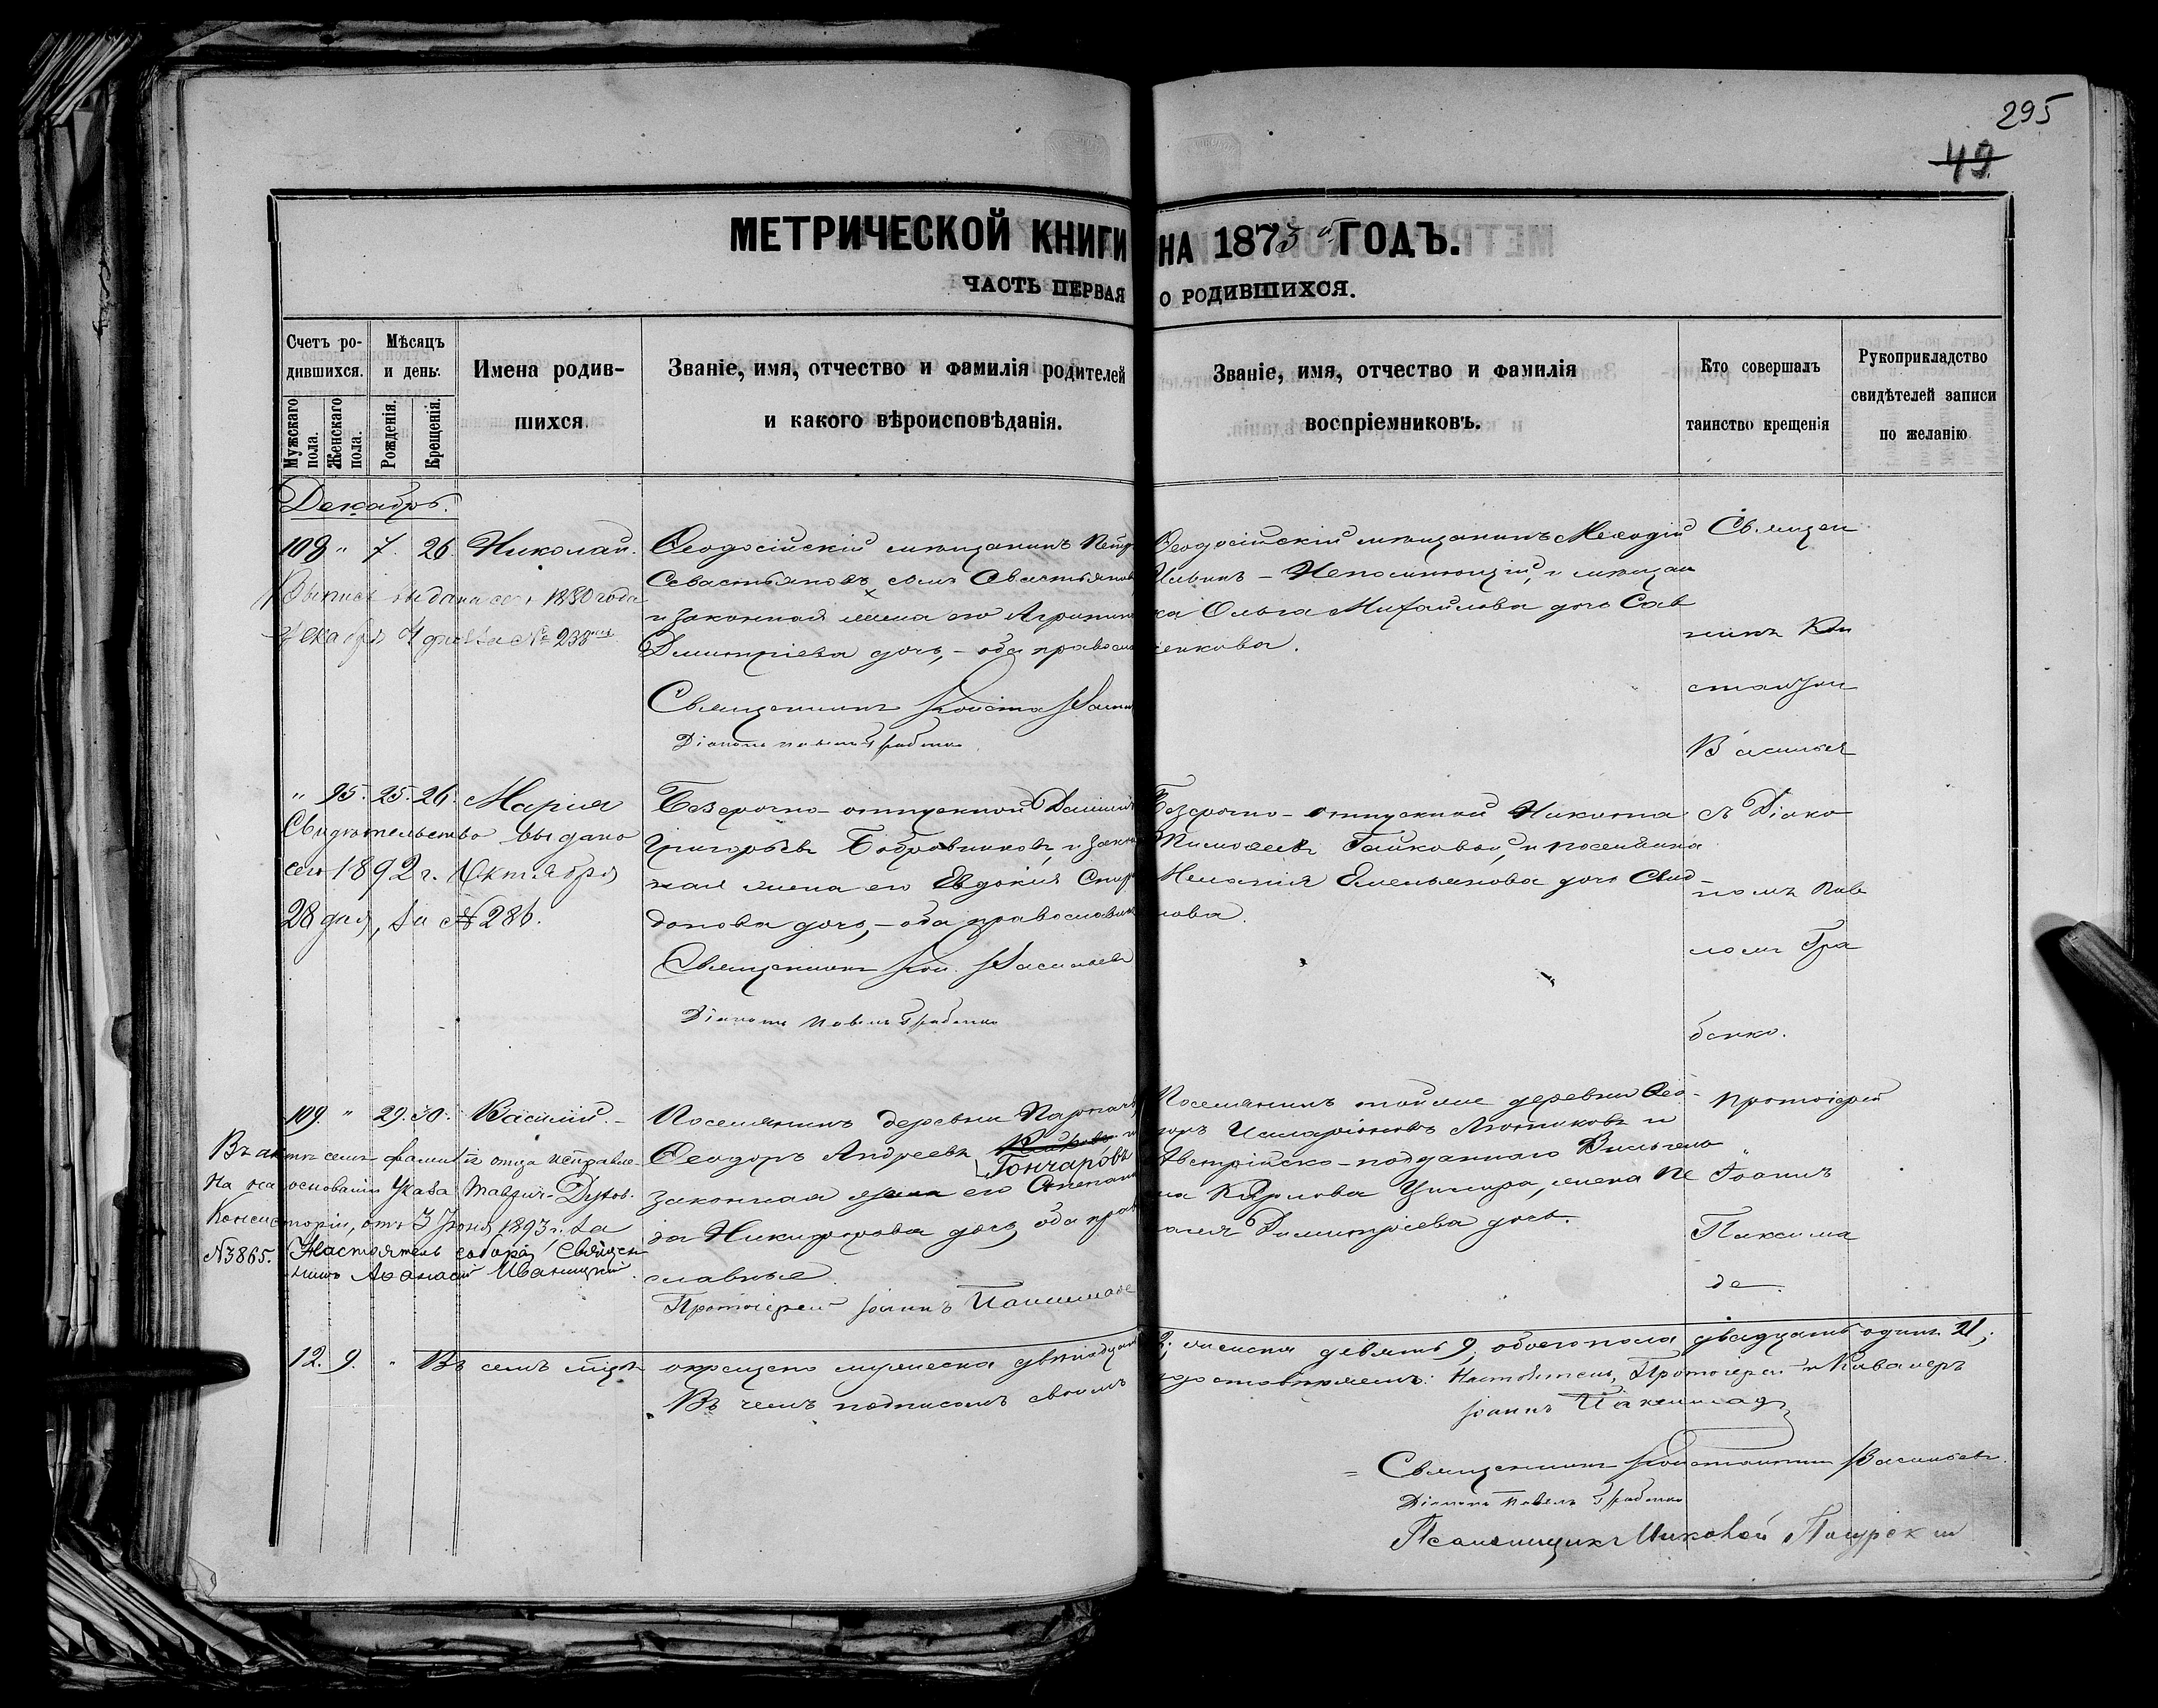 295
49
МЕТРИЧЕСКОЙ КНИГИ НА 1875 ГОДЪ.
ЧАСТЬ ПЕРВАЯ О РОДИВШИХСЯ.
Счетъ ро-
дившихся.
Мужскаго пола.
Женскаго пола.
Мѣсяцъ
и день.
Рожденія.
Крещенія.
Имена родив-
шихся.
Званіе, имя, отчество и фамилія родителей
и какого вѣроисповѣданія.
Званіе, имя, отчество и фамилія
воспріемниковъ.
Кто совершалъ
таинство крещенія
Рукоприкладство
свидѣтелей записи
по желанію
Декабрь.
108 " 7. 26. Николай.
Выпись выдана сего 1880 года
Декабря 4 дня за № 238
Ѳеодосійскій мѣщанинъ Петръ
Севастьяновъ
и законная жена его Агрипина
Димитріева дочь, - оба правосла
Священникъ Конста Васи
Діаконъ Павелъ Грабенко
Ѳеодосійскій мѣщанинъ Меѳодій
Ильинъ - Непомнющій, и мѣщан
ка Ольга Михайлова дочь Сав
ченкова.
Священ
никъ Кон
стантин
Васильев
" 95. 25. 26. Марія
Свидѣтельство выдано
сего 1892 г. Октября
28 дня, за № 286.
Безсрочно-отпускной Даніилъ
Григорьевъ Бобровниковъ, и закон
ная жена его Евдокія Спири
донова дочь, - оба православн
Священникъ Кон. Васильевъ
Діаконъ Павелъ Грабенко
Безсрочно-отпускной Никита
Тимоѳеевъ Гайковой, и поселянка
Меланія Емельянова дочь
съ Діако
номъ Павл
ломъ Гра
бенко.
109. " 29. 30. Василій.
Въ актѣ семъ фамилія отца исправле-
на на основаніи Указа Таврич. Духов.
Консисторіи, отъ 3 Іюня 1893 г. за
№ 3865. Настоятель собора, Священ
никъ Аѳанасій Иваницкій.
Поселянинъ деревни Парпачъ
Ѳеодоръ Андреевъ
Гончаровъ
законная жена его Степани
да Никифорова дочь, оба прав
славные
Протоіерей Іоаннъ Паксимаде
Поселянинъ тойже деревни Ѳео-
доръ Илларіоновъ Лютиковъ и
Австрійско-подданнаго Вильгель
ма Карлова Цимира, жена Пе
лагея Димитріева дочь.
Протоіерей
Іоаннъ
Паксима
де
12. 9. " Въ семъ мцѣ окрещено мужеска двѣнадцать
12; женска девять 9; обоего пола двадцать одинъ 21;
Въ чемъ подписомъ своимъ
удостовѣряемъ: Настоятель, Протоіерей и Кавалеръ
Іоаннъ Паксимаде
Священникъ Константинъ Васильевъ.
Діаконъ Павелъ Грабенко
Псаломщикъ Николай